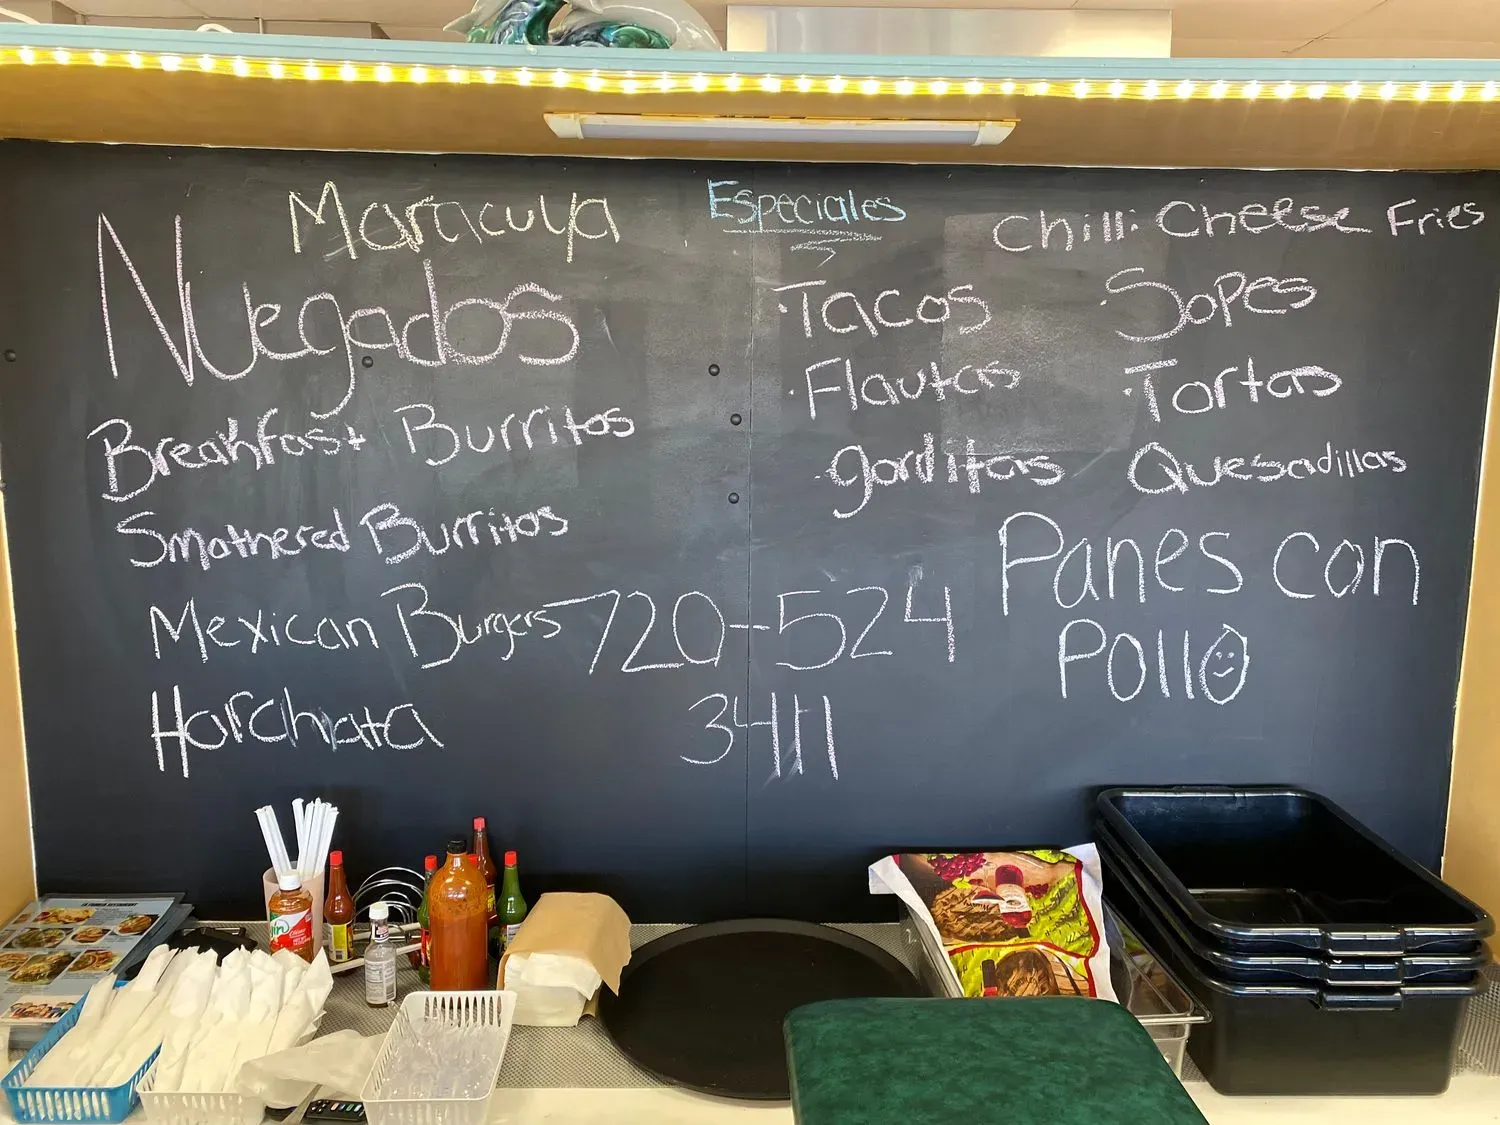 Maracuya
Nuegados
Breakfast Burritos
Smothered Burritos
Mexican Burgers
Horchata
720-524
3411
Especiales
Chilli Cheese Fries
·Tacos
·Sopes
·Flautas
·Tortas
·gorditas
Quesadillas
Panes con
Pollo